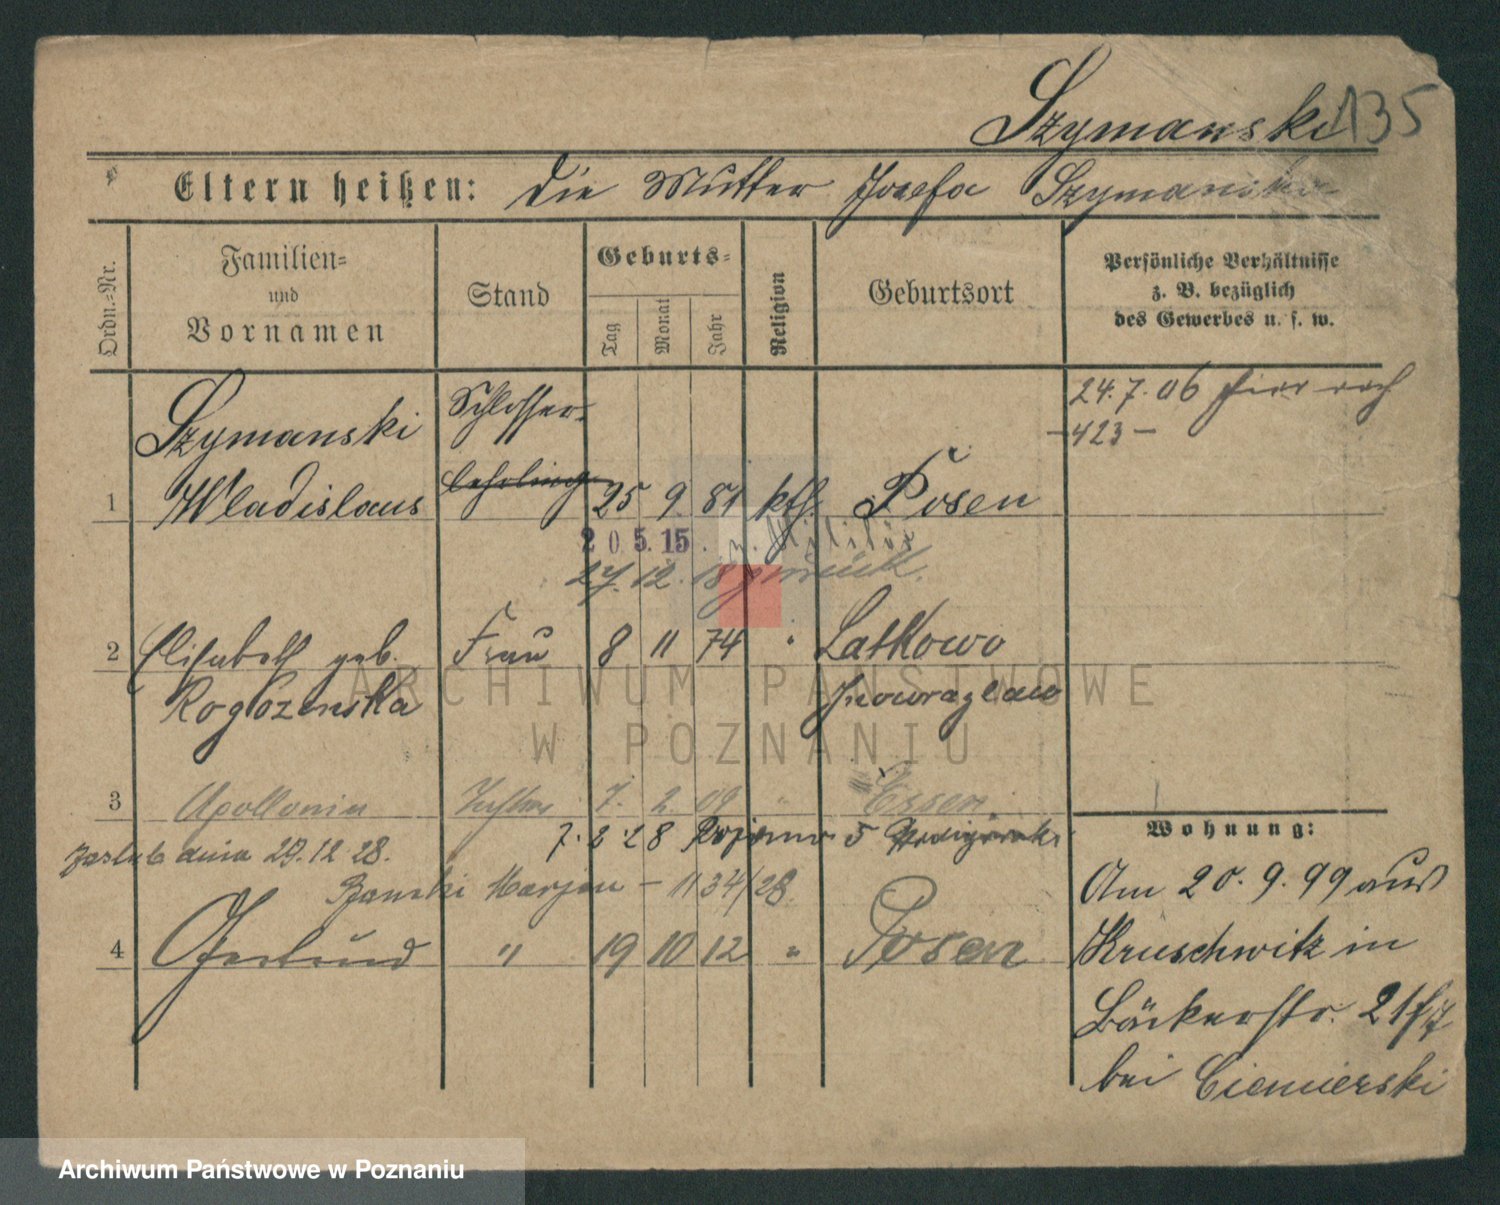 Szymanski 135
Eltern heißen: die Mutter Josefa Szymanska
Ordn.-Nr.
Familien-
und
Vornamen
Stand
Geburts-
Tag
Monat
Jahr
Religion
Geburtsort
Persönliche Verhältnisse
z. B. bezüglich
des Gewerbes u. s. w.
24. 7. 06 hier nach
-423-
Szymanski
Schlosser-
1 Wladislaus lehrling 25 9. 81 kth. Posen
20 5. 15. z. Militär
27. 12. 18 zurück.
2 Elisabeth geb. Frau 8 11 74 " Latkowo
Rogozinska Inowrazlaw
3 Apollonia Tochter 7. 2. 09 " Essen
7. 2. 28
zaślubiona 29. 12 28.
Marjan - 1134/28.
4 Gertrud " 19 10 12 " Posen
Wohnung:
Am 20. 9. 99 aus
Kruschwitz in
Bäckerstr. 21
bei Ciemierski
ARCHIWUM PAŃSTWOWE
W POZNANIU
Archiwum Państwowe w Poznaniu